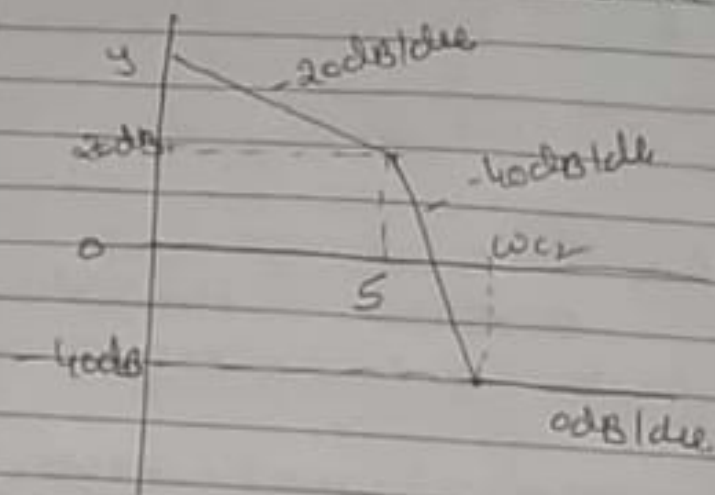 y
-20dB/dec
20dB
-40dB/dec
0
5
ωc2
-40dB
0dB/dec.